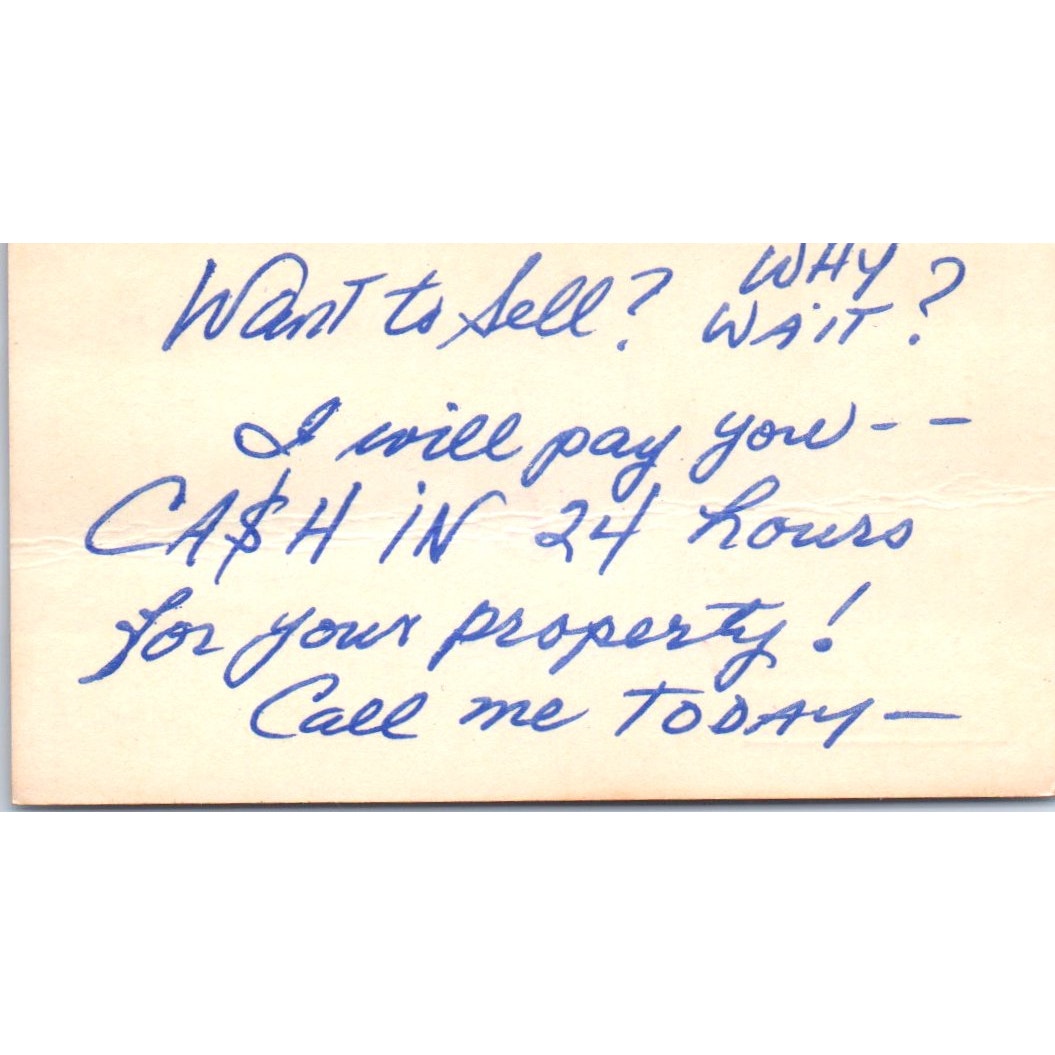 Want to Sell? WHY
WAIT?
I will pay you--
CA$H IN 24 hours
for your property!
Call me TODAY—